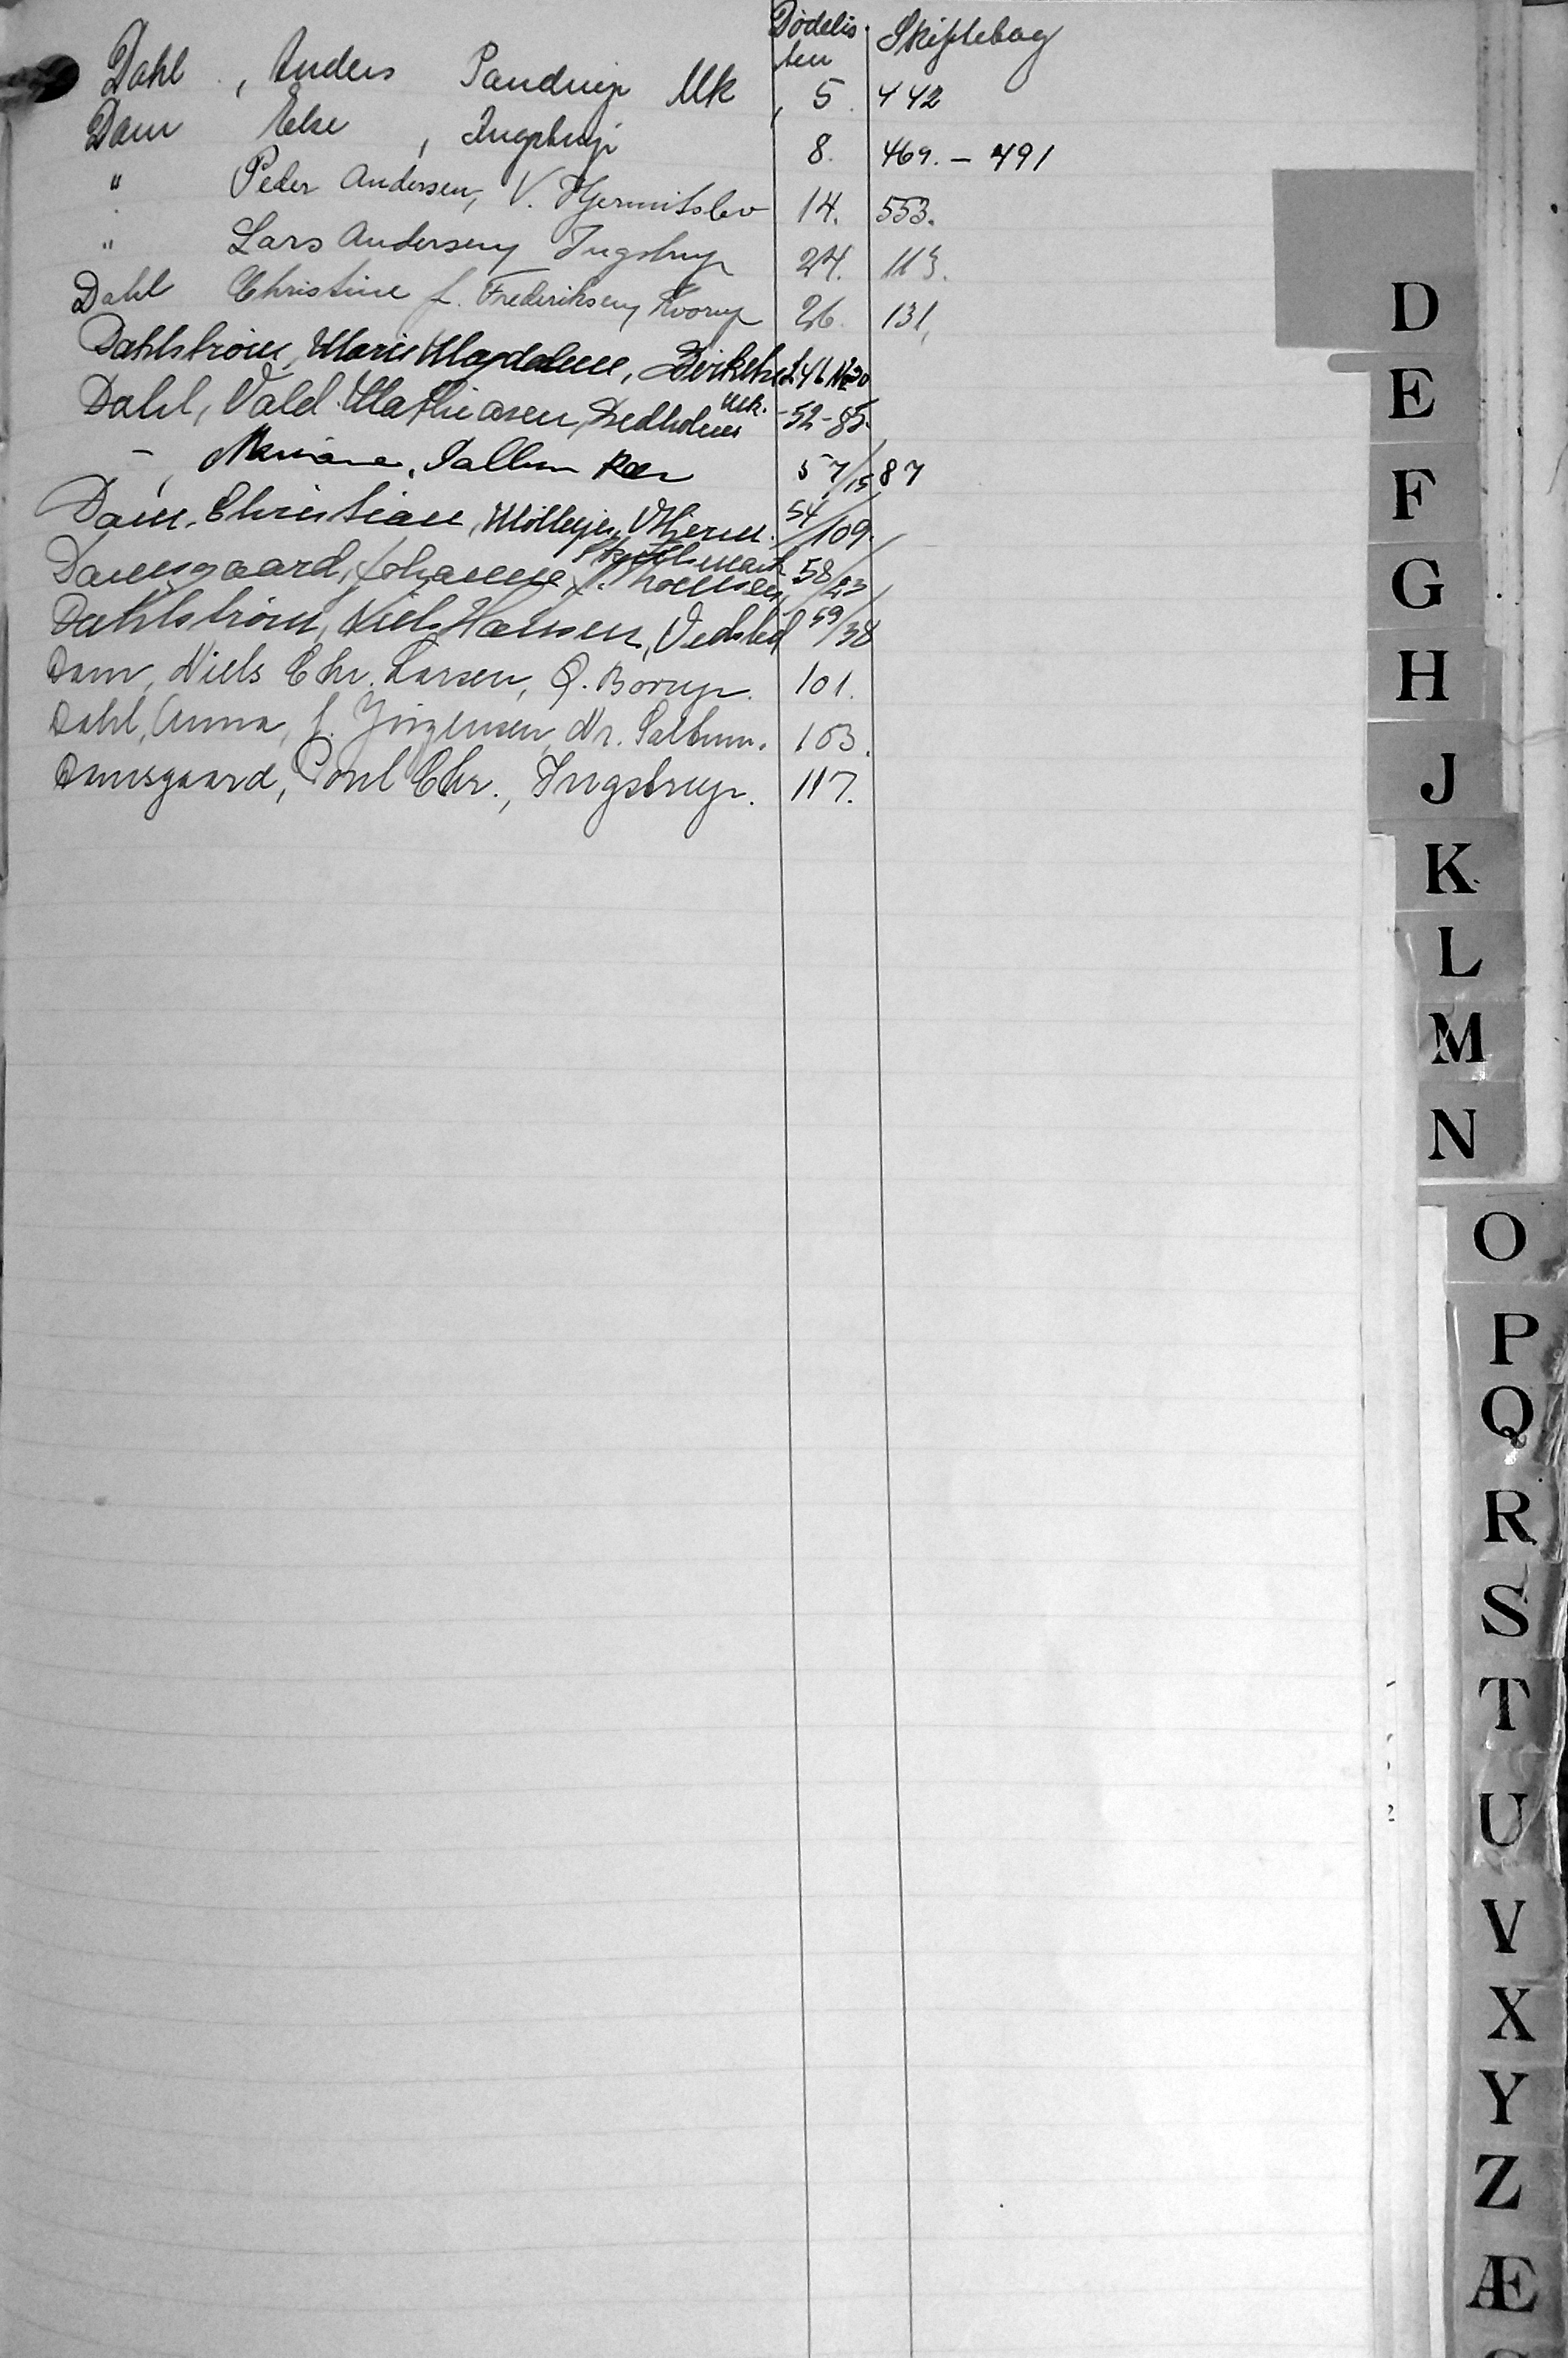 Dødelis- Skiftebog
ten
Dahl, Anders Pandrup Mk 5. 442
Dam Else, Ingstrup 8. 469. - 491
" Peder Andersen, V. Hjermitslev 14. 553.
" Lars Andersen, Ingstrup 24. 113.
Dahl Christine f. Frederiksen, Kvorup 26. 131,
Dahlstrøm, Marie Magdalene, Birkelse
Dahl, Vald. Mathiasen, Dedholms Mk. -52-85.
- , Mariane, Saltum Kær 57/15 87
Dam, Christian, Møllegr. V Hjerm. 54/109.
Damsgaard, Johanne f. Thomsen, 58/23
Dahlstrøm, Niels Hansen, Vedsted 59/38
Dam, Niels Chr. Larsen, Ø. Borup. 101.
Dahl, Anna, f. Jørgensen, Nr. Saltum. 103.
Damsgaard, Poul Chr., Ingstrup. 117.
D
E
F
G
H
J
K
L
M
N
O
P
Q
R
S
T
U
V
X
Y
Z
Æ